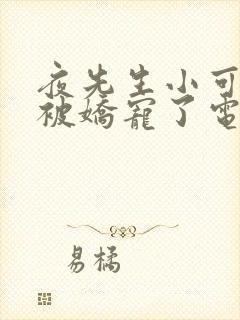 夜先生小可
被嬌寵了電
易橘